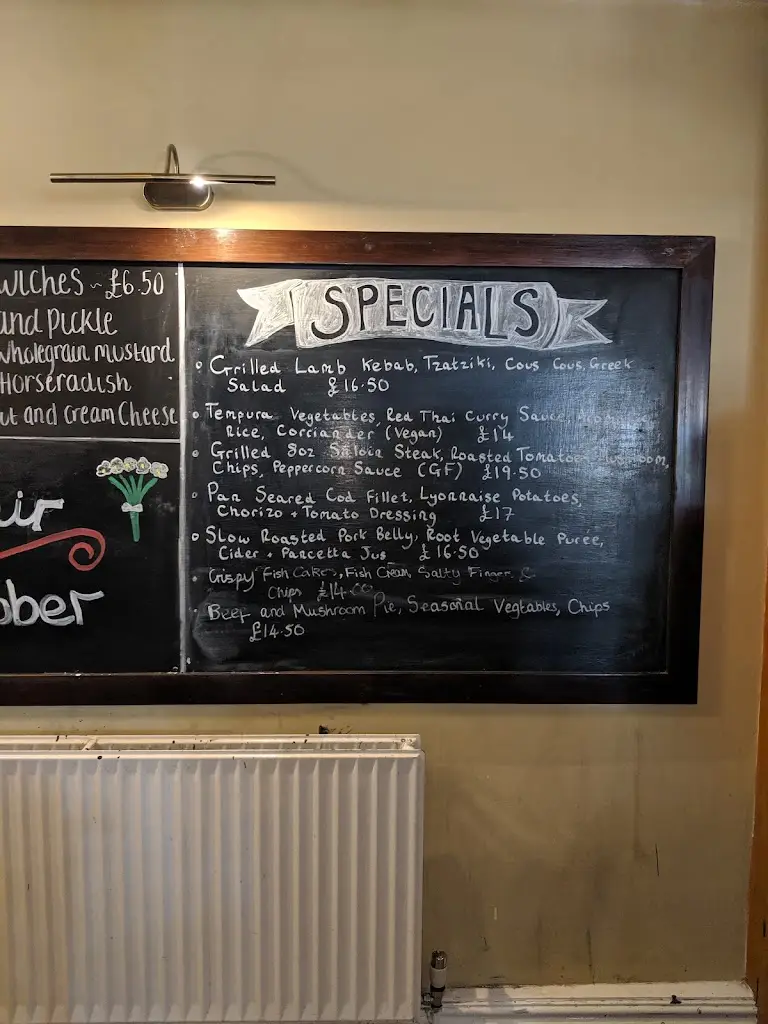 wiches ~ £6.50
and pickle
wholegrain mustard
Horseradish
ut and cream Cheese
air
ober
SPECIALS
Grilled Lamb Kebab, Tzatziki, Cous Cous, Greek
Salad £16.50
Tempura Vegetables, Red Thai Curry Sauce,
Rice, Corriander (Vegan) £14
Grilled 8oz Saloin Steak, Roasted Tomatoe, Mushroom,
Chips, Peppercorn Sauce (GF) £19.50
Pan Seared Cod Fillet, Lyonnaise Potatoes,
Chorizo + Tomato Dressing £17
Slow Roasted Pork Belly, Root Vegetable Puree,
Cider + Pancetta Jus £16.50
Crispy Fish Cakes, Fish Cream, Salty Finger &
Chips £14.00
Beef and Mushroom Pie, Seasonal Vegtables, Chips
£14.50